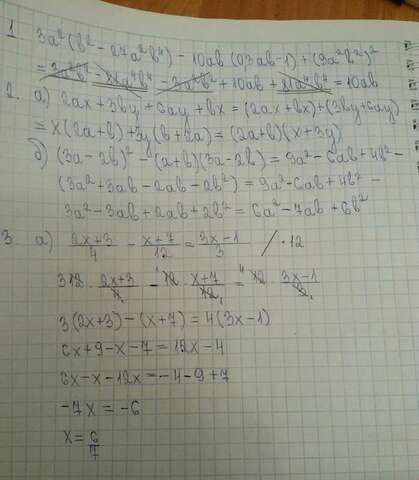 1 3a²(b² - 27a²b⁴) - 10ab(03ab-1) + (9a²b²)²
= 3a²b² - 81a⁴b⁴ - 3a²b² + 10ab + 81a⁴b⁴ = 10ab
2. а) 2ax + 3by + 6ay + bx = (2ax+bx) + (3by+6ay)
= x(2a+b) + 3y(b+2a) = (2a+b)(x+3y)
б) (3a-2b)² - (a+b)(3a-2b) = 9a² - 6ab + 4b² -
(3a² + 3ab - 2ab - 2b²) = 9a² - 6ab + 4b² -
3a² - 3ab + 2ab + 2b² = 6a² - 7ab + 6b²
3. а) 2x+3/4 - x+7/12 = 3x-1/3 / · 12
³12 · 2x+3/4₁ - ¹12 · x+7/12₁ = ⁴12 · 3x-1/3₁
3(2x+3) - (x+7) = 4(3x-1)
6x + 9 - x - 7 = 12x - 4
6x - x - 12x = -4 - 9 + 7
-7x = -6
x = 6/7